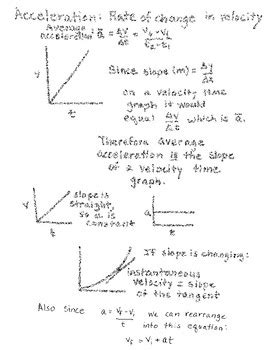 Acceleration: Rate of change in velocity
Average
acceleration a̅ = Δv/Δt = vf-vi/t2-t1
v
t
Since slope (m) = Δy/Δx
on a velocity time
graph it would
equal Δv/Δt which is a̅.
Therefore average
acceleration is the slope
of a velocity time
graph.
v
t
slope is
straight,
so a is
constant
a
t
If slope is changing:
instantaneous
velocity = slope
of the tangent
Also since a = vf-vi/t we can rearrange
into this equation:
vf = vi + at